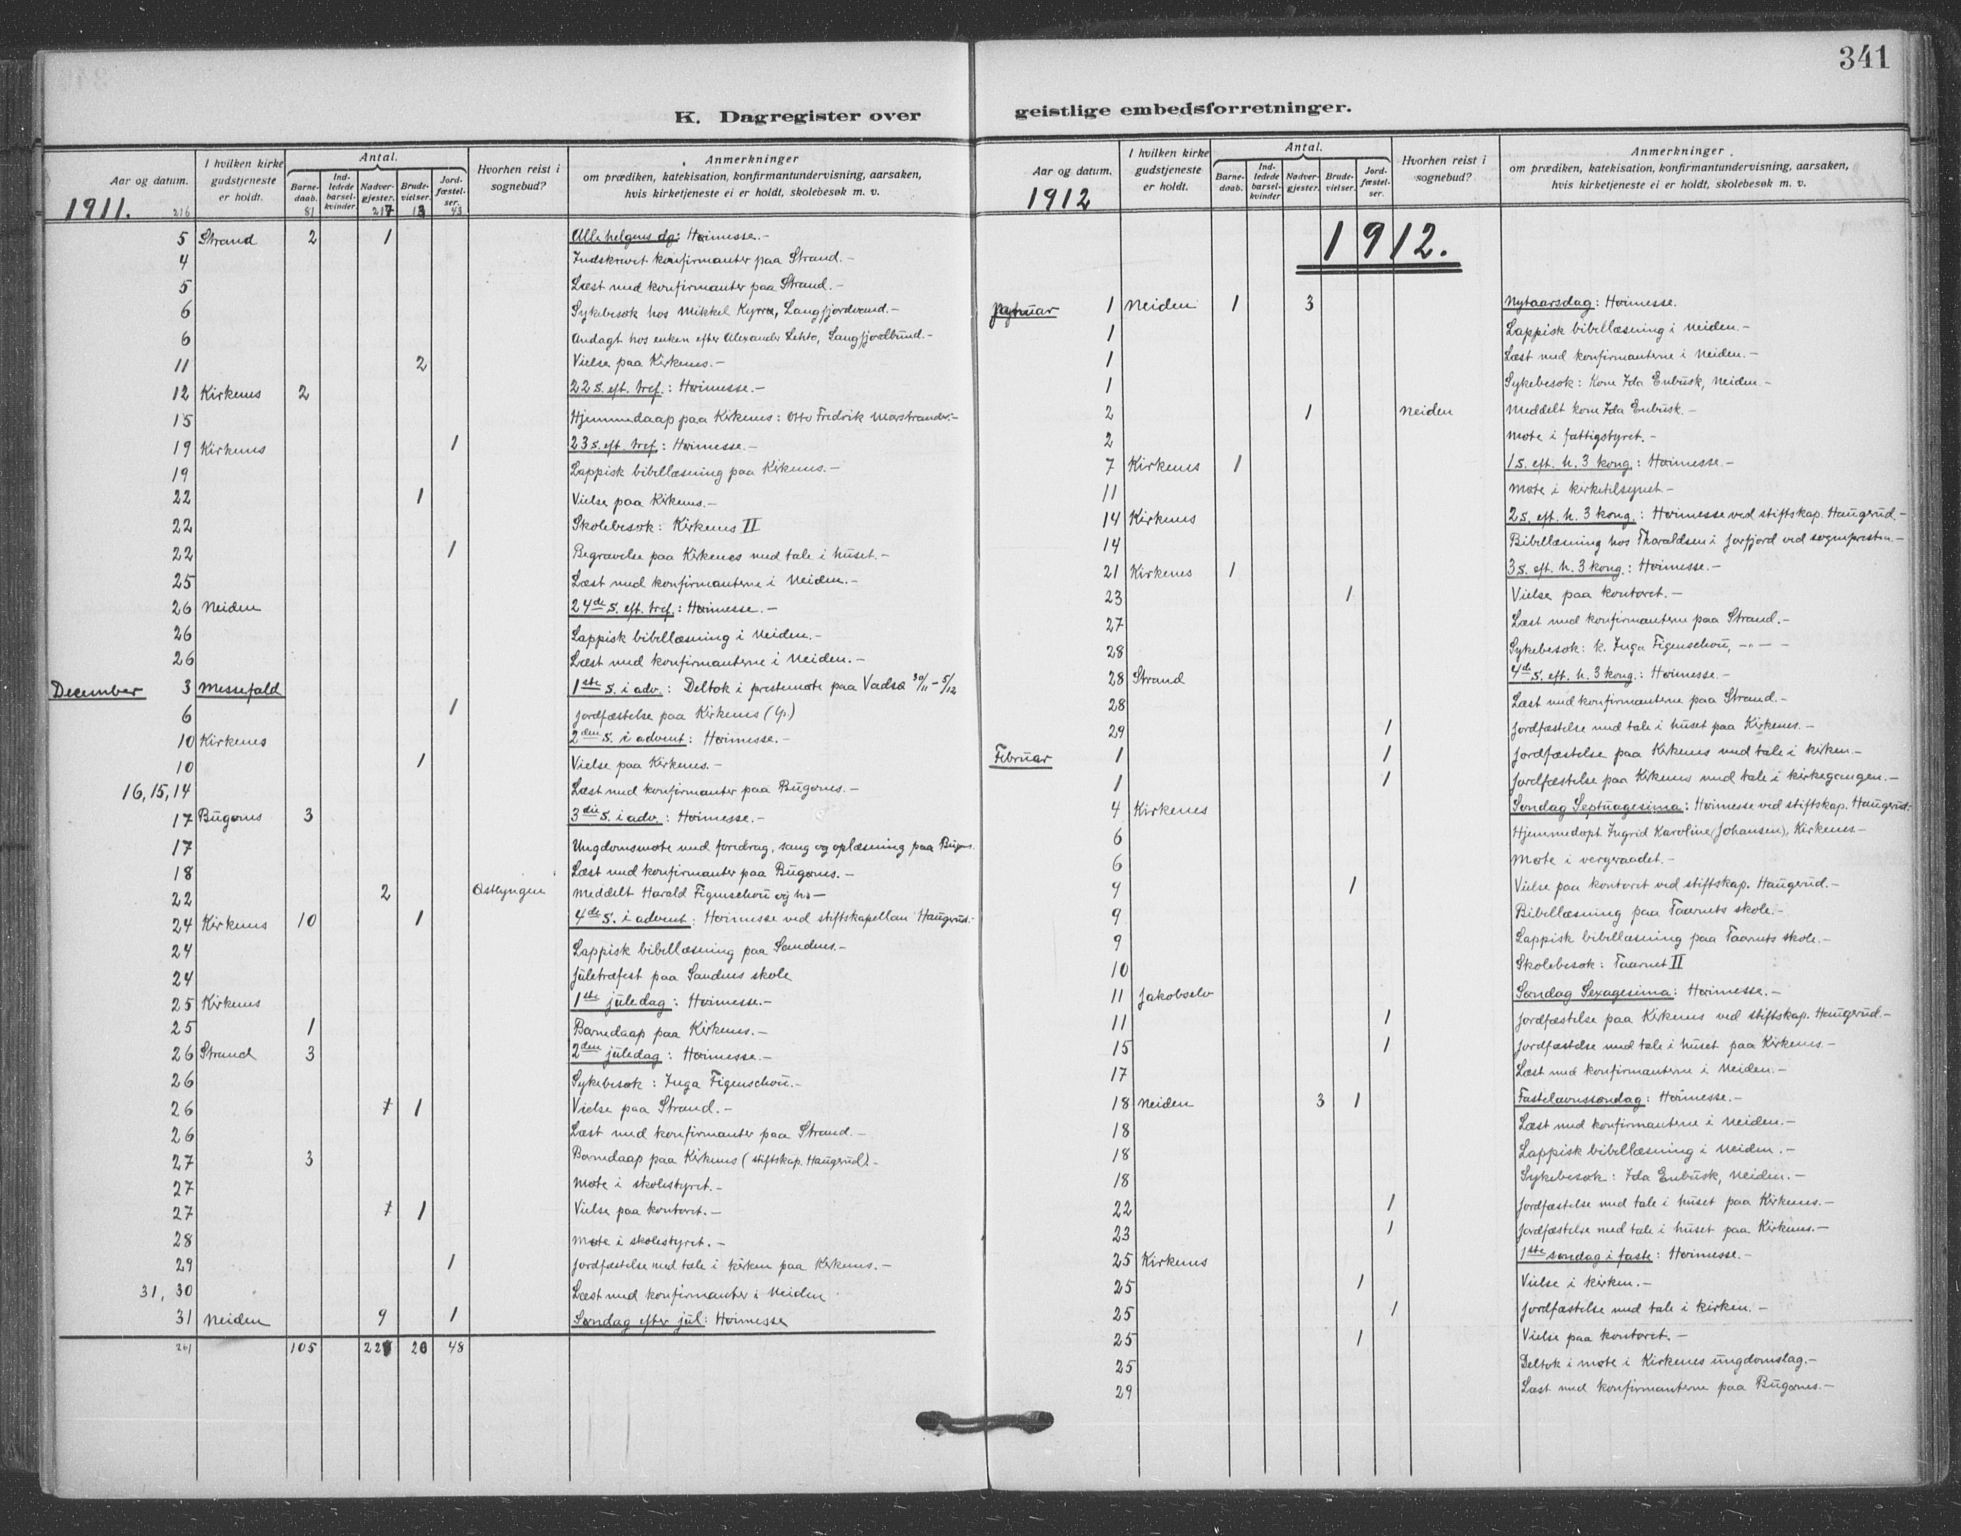 341
K. Dagregister over geistlige embedsforretninger.
Aar og datum. I hvilken kirke gudstjeneste er holdt. Antal. Barnedaab. Indledede barselkvinder. Nadvergjester. Brudevielser. Jordfæstelser. Hvorhen reist i sognebud? Anmerkninger om prædiken, katekisation, konfirmantundervisning, aarsaken, hvis kirketjeneste ei er holdt, skolebesøk m. v.
1911. 216 81 217 13 43
5 Strand 2 1 Alle helgens dg: Høimesse.-
4 Indskrevet konfirmanter paa Strand.-
5 Læst med konfirmanter paa Strand.-
6 Sykebesøk hos Mikkel Kyrrø, Langfjordvand.-
6 Andagt hos enken efter Alexander Lehto, Langfjordbund.-
11 2 Vielse paa Kirkenes.-
12 Kirkenes 2 22 s. eft. tref.: Høimesse.-
15 Hjemmedaap paa Kirkenes: Otto Fredrik Marstrander.-
19 Kirkenes 1 23 s. eft. tref.: Høimesse.-
19 Lappisk bibellæsning paa Kirkenes.-
22 1 Vielse paa Kirkenes.-
22 Skolebesøk: Kirkenes II
22 1 Begravelse paa Kirkenes med tale i huset.-
25 Læst med konfirmanterne i Neiden.-
26 Neiden 24de s. eft. tref.: Høimesse.-
26 Lappisk bibellæsning i Neiden.-
26 Læst med konfirmanterne i Neiden.-
December 3 Messefald 1ste s. i adv.: Deltok i prestemøte paa Vadsø 30/11 - 5/12
6 1 Jordfæstelse paa Kirkenes
10 Kirkenes 2den s. i advent: Høimesse.-
10 1 Vielse paa Kirkenes.-
16, 15, 14 Læst med konfirmanter paa Bugønes.-
17 Bugønes 3 3die s. i adv.: Høimesse.-
17 Ungdomsmøte med foredrag, sang og oplæsning paa Bugøn.
18 Læst med konfirmanter paa Bugønes.-
22 2 Østlyngen Meddelt Harald Figenschou og
24 Kirkenes 10 1 4de s. i advent: Høimesse ved stiftskapellan Haugerud.-
24 Lappisk bibellæsning paa Sandnes.-
24 Juletræfest paa Sandnes skole
25 Kirkenes 1ste juledag: Høimesse.-
25 1 Barnedaap paa Kirkenes.-
26 Strand 3 2den juledag: Høimesse.-
26 Sykebesøk: Inga Figenschou.-
26 1 1 Vielse paa Strand.-
26 Læst med konfirmanter paa Strand.-
27 3 Barnedaap paa Kirkenes (stiftskap. Haugerud).-
27 Møte i skolestyret.-
27 1 1 Vielse paa kontoret.-
28 Møte i skolestyret.-
29 1 Jordfæstelse med tale i kirken paa Kirkenes.-
31, 30 Læst med konfirmanter i Neiden
31 Neiden 9 1 Søndag efter jul: Høimesse
261 105 20 48
Aar og datum. I hvilken kirke gudstjeneste er holdt. Antal. Barnedaab. Indledede barselkvinder Nadvergjester. Brudevielser. Jordfæstelser. Hvorhen reist i sognebud? Anmerkninger om prædiken, katekisation, konfirmantundervisning, aarsaken, hvis kirketjeneste ei er holdt, skolebesøk m. v.
1912
1912.
Januar 1 Neiden 1 3 Nytaarsdag: Høimesse.
1 Lappisk bibellæsning i Neiden.-
1 Læst med konfirmanterne i Neiden.-
1 Sykebesøk: Kone Ida Enbusk, Neiden.-
2 1 Neiden Meddelt kone Ida Enbusk.-
2 Møte i fattigstyret.-
7 Kirkenes 1 1 s. eft. h. 3 kong.: Høimesse.-
11 Møte i kirketilsynet-
14 Kirkenes 2 s. eft. h. 3 kong.: Høimesse ved stiftskap. Haugerud.-
14 Bibellæsning hos Tharaldsen i Jarfjord ved sognepresten.-
21 Kirkenes 1 3 s. eft. h. 3 kong.: Høimesse.-
23 1 Vielse paa kontoret.-
27 Læst med konfirmanterne paa Strand.-
28 Sykebesøk: k. Inga Figenschou, -"- -
28 Strand 4de s. eft. h. 3 kong: Høimesse.-
28 Læst med konfirmanterne paa Strand.-
29 1 Jordfæstelse med tale i huset paa Kirkenes.-
Februar 1 1 Jordfæstelse paa Kirkenes med tale i kirken.-
1 1 Jordfæstelse paa Kirkenes med tale i kirkegangen.-
4 Kirkenes Søndag Septuagesima: Høimesse ved stiftskap. Haugerud.-
6 Hjemmedøpt Ingrid Karoline (Johansen), Kirkenes-
6 Møte i vergeraadet.-
9 1 Vielse paa kontoret ved stiftskap. Haugerud.-
9 Bibellæsning paa Taarnets skole.-
9 Lappisk bibellæsning paa Taarnets skole.-
10 Skolebesøk: Taarnet II
11 Jakobselv Søndag Sexagesima: Høimesse.-
11 1 Jordfæstelse paa Kirkenes ved stiftskap. Haugerud.-
15 1 Jordfæstelse med tale i huset paa Kirkenes.-
17 Læst med konfirmanterne i Neiden.-
18 Neiden 3 1 Fastelavnssøndag: Høimesse.-
18 Læst med konfirmanterne i Neiden.-
18 Lappisk bibellæsning i Neiden.-
18 Sykebesøk: Ida Enbusk, Neiden.-
22 1 Jordfæstelse med tale i huset paa Kirkenes.-
23 1 Jordfæstelse med tale i huset paa Kirkenes.-
25 Kirkenes 1ste søndag i faste: Høimesse.-
25 1 Vielse i kirken.-
25 1 Jordfæstelse med tale i kirken.-
25 1 Vielse paa kontoret.-
25 Deltok i møte i Kirkenes ungdomslag.-
29 Læst med konfirmanterne paa Bugønes.-